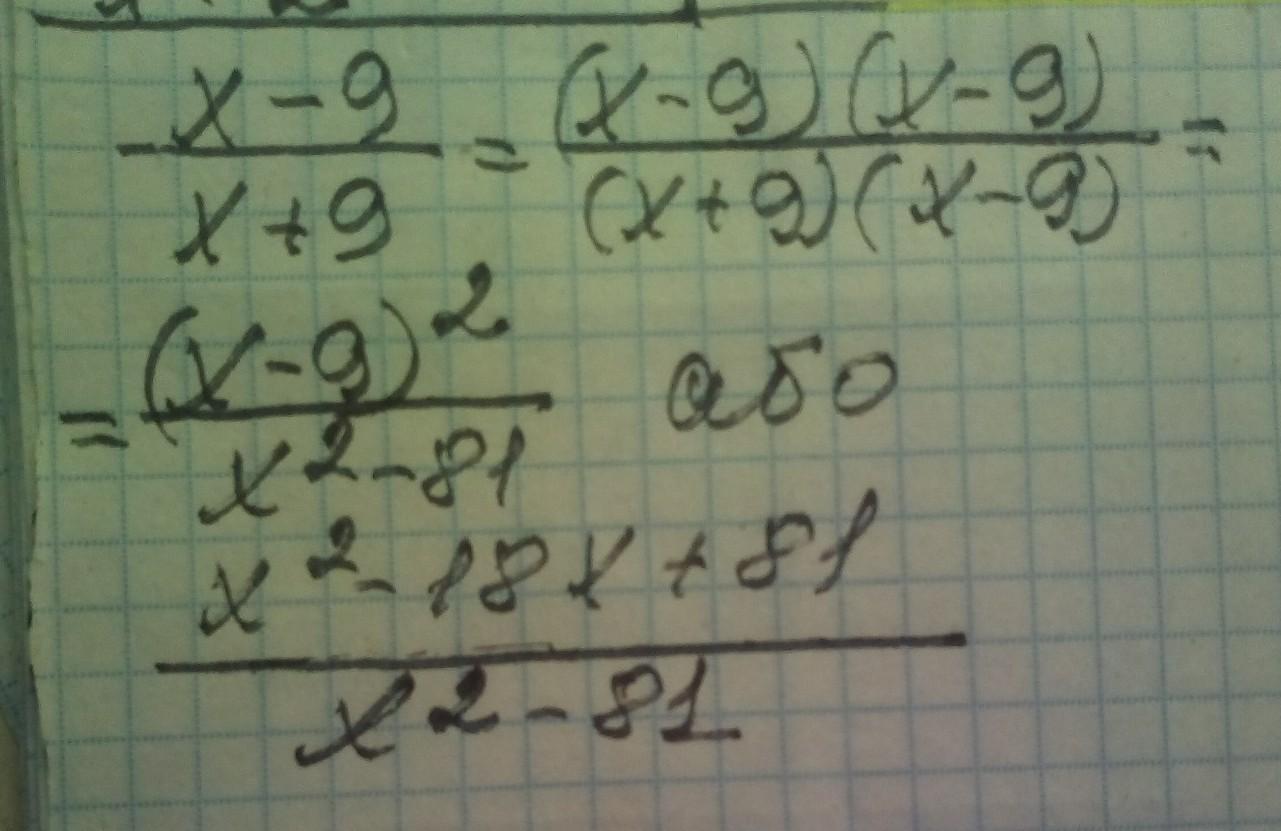 x - 9 / x + 9 = (x - 9)(x - 9) / (x + 9)(x - 9) =
= (x - 9)² / x² - 81 або
x² - 18x + 81 / x² - 81